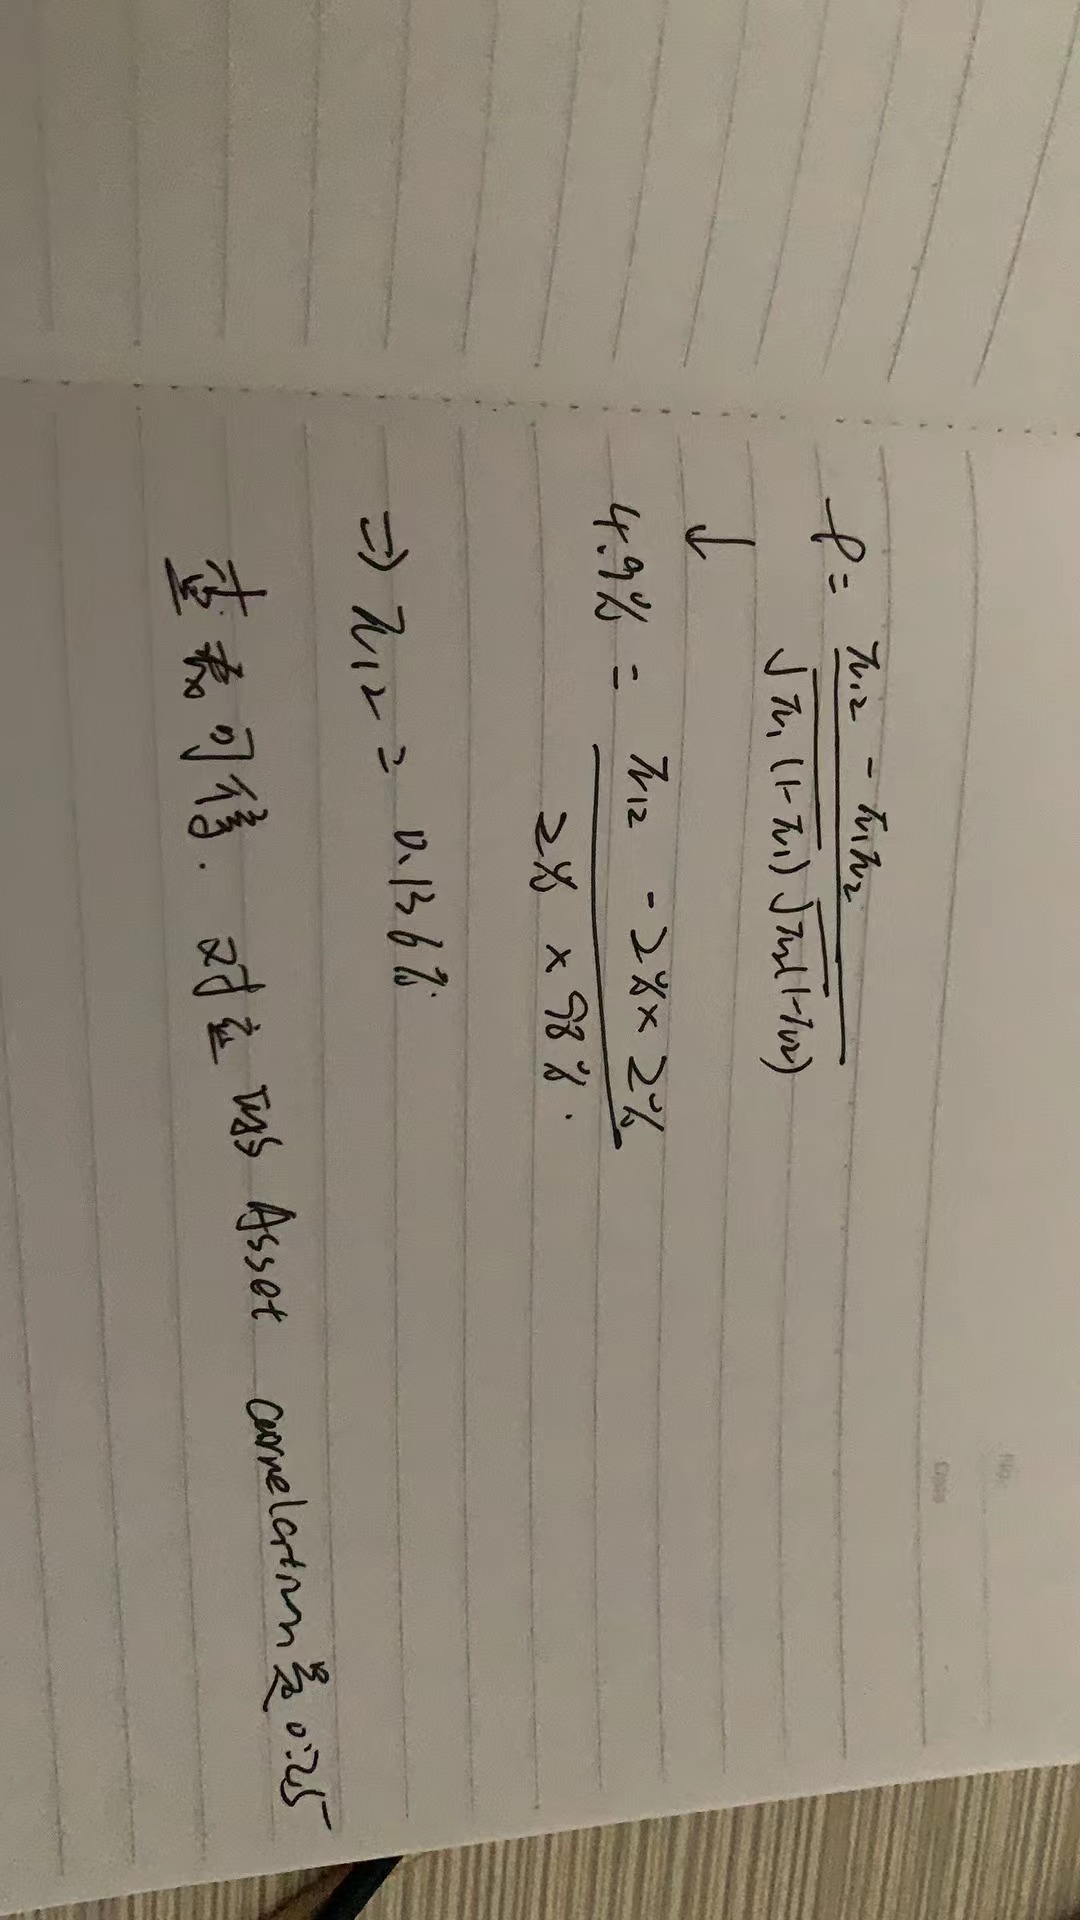 ρ = (π12 - π1π2) / (√π1(1-π1) √π2(1-π2))
↓
4.9% = (π12 - 2% × 2%) / (2% × 98%).
⇒ π12 = 0.136%
查表可得. 对应的 Asset correlation 是 0.25
No.
Date